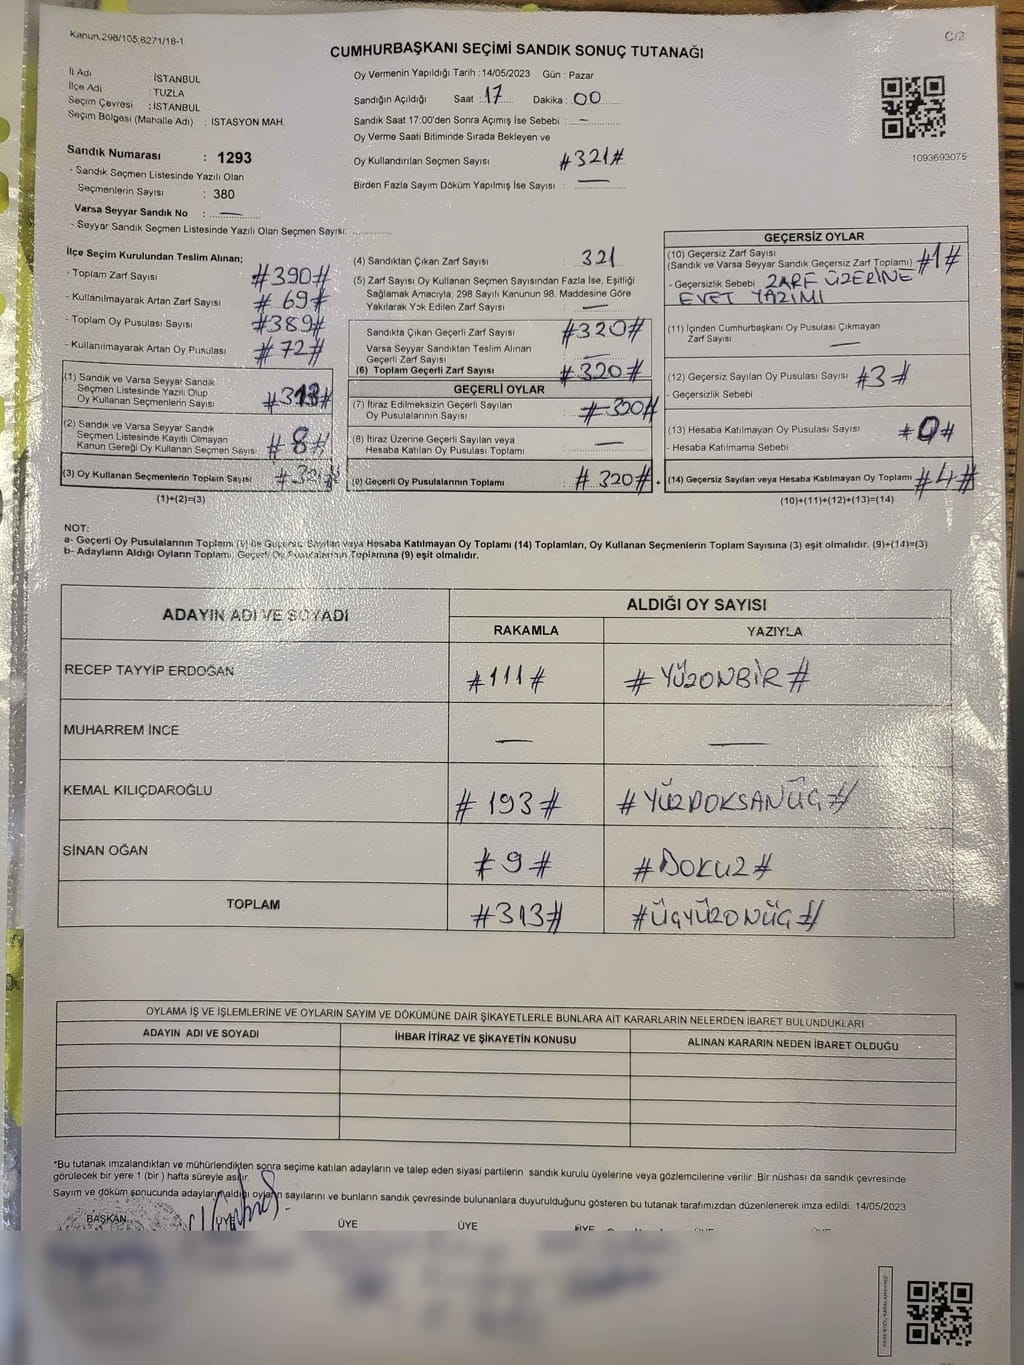 Kanun,298/105,6271/18-1
C/2
CUMHURBAŞKANI SEÇİMİ SANDIK SONUÇ TUTANAĞI
İl Adı : İSTANBUL
İlçe Adı : TUZLA
Seçim Çevresi : İSTANBUL
Seçim Bölgesi (Mahalle Adı) : İSTASYON MAH.
Sandık Numarası : 1293
- Sandık Seçmen Listesinde Yazılı Olan
Seçmenlerin Sayısı : 380
Varsa Seyyar Sandık No : —
- Seyyar Sandık Seçmen Listesinde Yazılı Olan Seçmen Sayısı:
Oy Vermenin Yapıldığı Tarih : 14/05/2023 Gün : Pazar
Sandığın Açıldığı Saat : 17 Dakika : 00
Sandık Saat 17:00'den Sonra Açımış İse Sebebi : —
Oy Verme Saati Bitiminde Sırada Bekleyen ve
Oy Kullandırılan Seçmen Sayısı #321#
Birden Fazla Sayım Döküm Yapılmış İse Sayısı : —
1093693075
İlçe Seçim Kurulundan Teslim Alınan;
- Toplam Zarf Sayısı #390#
- Kullanılmayarak Artan Zarf Sayısı #69#
- Toplam Oy Pusulası Sayısı #389#
- Kullanılmayarak Artan Oy Pusulası #72#
(1) Sandık ve Varsa Seyyar Sandık
Seçmen Listesinde Yazılı Olup
Oy Kullanan Seçmenlerin Sayısı #313#
(2) Sandık ve Varsa Seyyar Sandık
Seçmen Listesinde Kayıtlı Olmayan
Kanun Gereği Oy Kullanan Seçmen Sayısı #8#
(3) Oy Kullanan Seçmenlerin Toplam Sayısı #321#
(1)+(2)=(3)
(4) Sandıktan Çıkan Zarf Sayısı : 321
(5) Zarf Sayısı Oy Kullanan Seçmen Sayısından Fazla İse, Eşitliği
Sağlamak Amacıyla, 298 Sayılı Kanunun 98. Maddesine Göre
Yakılarak Yok Edilen Zarf Sayısı : —
Sandıkta Çıkan Geçerli Zarf Sayısı #320#
Varsa Seyyar Sandıktan Teslim Alınan
Geçerli Zarf Sayısı —
(6) Toplam Geçerli Zarf Sayısı #320#
GEÇERLİ OYLAR
(7) İtiraz Edilmeksizin Geçerli Sayılan
Oy Pusulalarının Sayısı : #320#
(8) İtiraz Üzerine Geçerli Sayılan veya
Hesaba Katılan Oy Pusulası Toplamı : —
(9) Geçerli Oy Pusulalarının Toplamı : #320# +
GEÇERSİZ OYLAR
(10) Geçersiz Zarf Sayısı
(Sandık ve Varsa Seyyar Sandık Geçersiz Zarf Toplamı) #1#
- Geçersizlik Sebebi ZARF ÜZERİNE
EVET YAZIMI
(11) İçinden Cumhurbaşkanı Oy Pusulası Çıkmayan
Zarf Sayısı : —
(12) Geçersiz Sayılan Oy Pusulası Sayısı : #3#
- Geçersizlik Sebebi
(13) Hesaba Katılmayan Oy Pusulası Sayısı : #0#
- Hesaba Katılmama Sebebi :
(14) Geçersiz Sayılan veya Hesaba Katılmayan Oy Toplamı : #4#
(10)+(11)+(12)+(13)=(14)
NOT:
a- Geçerli Oy Pusulalarının Toplamı (9) ile Geçersiz Sayılan veya Hesaba Katılmayan Oy Toplamı (14) Toplamları, Oy Kullanan Seçmenlerin Toplam Sayısına (3) eşit olmalıdır. (9)+(14)=(3)
b- Adayların Aldığı Oyların Toplamı, Geçerli Oy Pusulalarının Toplamına (9) eşit olmalıdır.
ADAYIN ADI VE SOYADI
ALDIĞI OY SAYISI
RAKAMLA YAZIYLA
RECEP TAYYİP ERDOĞAN #111# #YÜZONBİR#
MUHARREM İNCE — —
KEMAL KILIÇDAROĞLU #193# #YÜZDOKSANÜÇ#
SİNAN OĞAN #9# #DOKUZ#
TOPLAM #313# #ÜÇYÜZONÜÇ#
OYLAMA İŞ VE İŞLEMLERİNE VE OYLARIN SAYIM VE DÖKÜMÜNE DAİR ŞİKAYETLERLE BUNLARA AİT KARARLARIN NELERDEN İBARET BULUNDUKLARI
ADAYIN ADI VE SOYADI İHBAR İTİRAZ VE ŞİKAYETİN KONUSU ALINAN KARARIN NEDEN İBARET OLDUĞU
*Bu tutanak imzalandıktan ve mühürlendikten sonra seçime katılan adayların ve talep eden siyasi partilerin sandık kurulu üyelerine veya gözlemcilerine verilir. Bir nüshası da sandık çevresinde
görülecek bir yere 1 (bir ) hafta süreyle asılır.
Sayım ve döküm sonucunda adayların aldığı oyların sayılarını ve bunların sandık çevresinde bulunanlara duyurulduğunu gösteren bu tutanak tarafımızdan düzenlenerek imza edildi. 14/05/2023
BAŞKAN ÜYE ÜYE ÜYE ÜYE